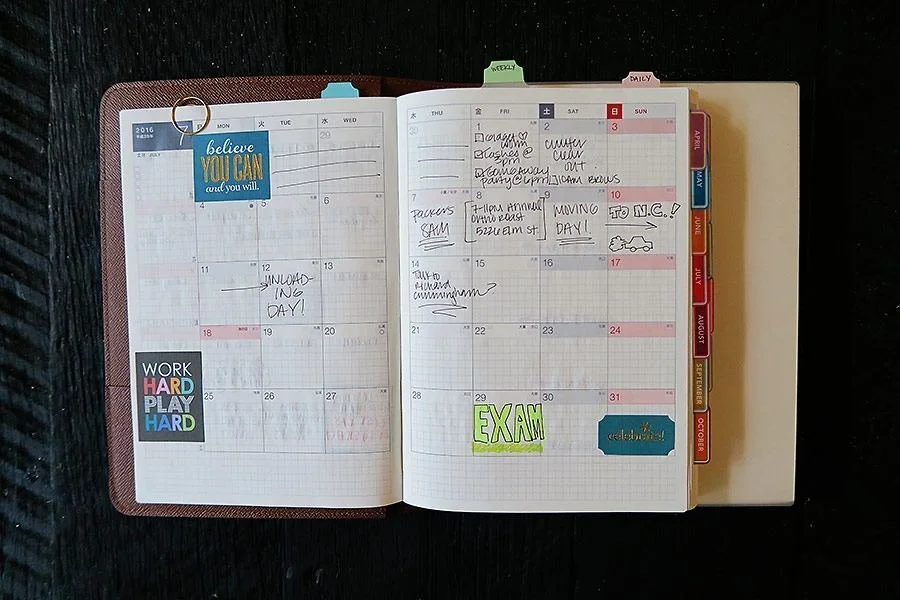 WEEKLY
DAILY
2016
7
月 MON
火 TUE
水 WED
木 THU
金 FRI
土 SAT
日 SUN
JULY
believe
YOU CAN
and you will.
29
1
2
3
party @ 6pm
clear
out
10AM BROWS
4
5
6
7
8
9
10
PACKERS
8AM
7-11pm ANNUAL
5226 Elm St.
MOVING
DAY!
TO N.C.!
11
12
13
14
15
16
17
UNLOAD-
ING
DAY!
Talk to
Richard
Cunningham
18
19
20
21
22
23
24
WORK
HARD
PLAY
HARD
25
26
27
28
29
30
31
EXAM
celebrate!
APRIL
MAY
JUNE
JULY
AUGUST
SEPTEMBER
OCTOBER